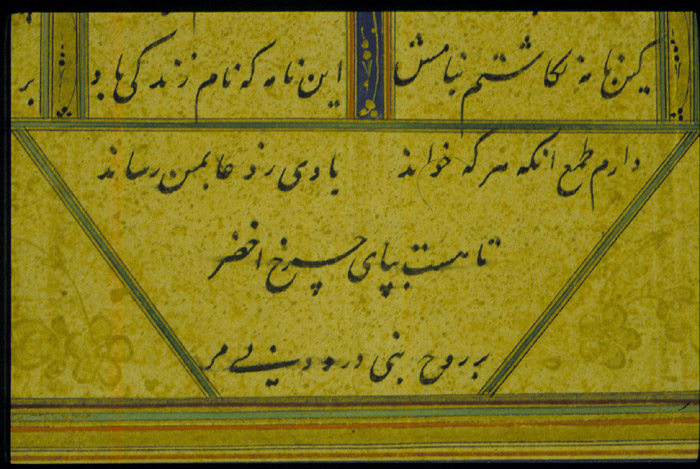 کین نامه نکاشتم بنامش این نامه که نام زندگی
دارم طمع انکه هر که خواند یادی ز دعا بمن رساند
تا هست بپای چرخ اخضر
بر روح نبی درود بی مر